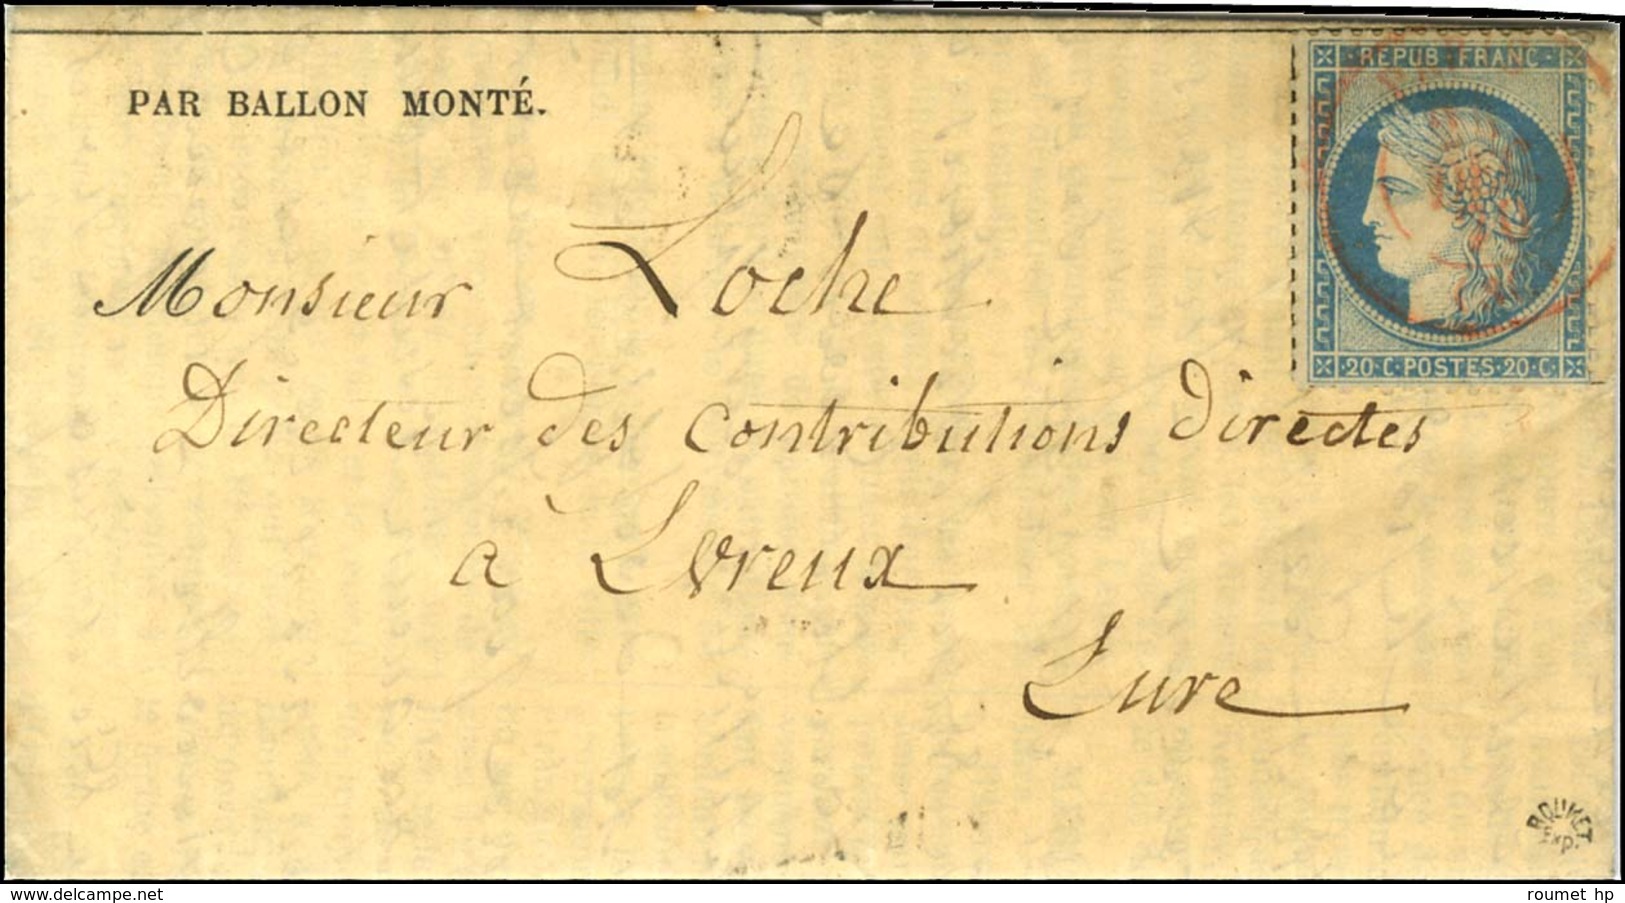 PAR BALLON MONTÉ.
REPUB FRANC
20 C POSTES 20 C
Monsieur Loche
Directeur des Contributions directes
à Evreux
Eure
ROUMET
EXP.
www.delcampe.net
roumet hp